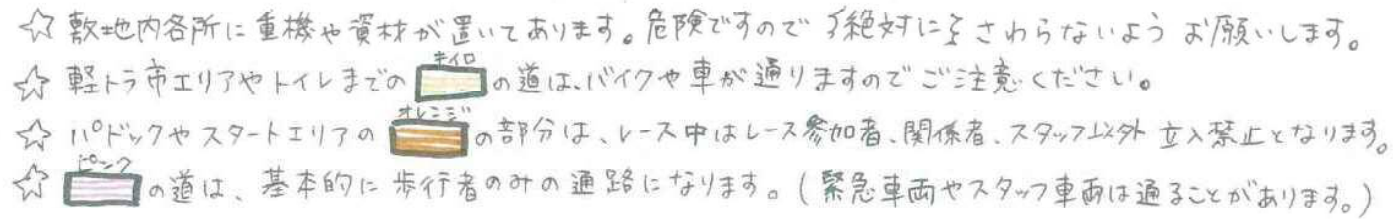 ☆ 敷地内各所に重機や資材が置いてあります。危険ですので 絶対に さわらないよう お願いします。
☆ 軽トラ市エリアやトイレまでの キイロ の道は、バイクや車が通りますのでご注意ください。
☆ パドックやスタートエリアの オレンジ の部分は、レース中はレース参加者、関係者、スタッフ以外 立入禁止となります。
☆ ピンク の道は、基本的に歩行者のみの通路になります。(緊急車両やスタッフ車両は通ることがあります。)